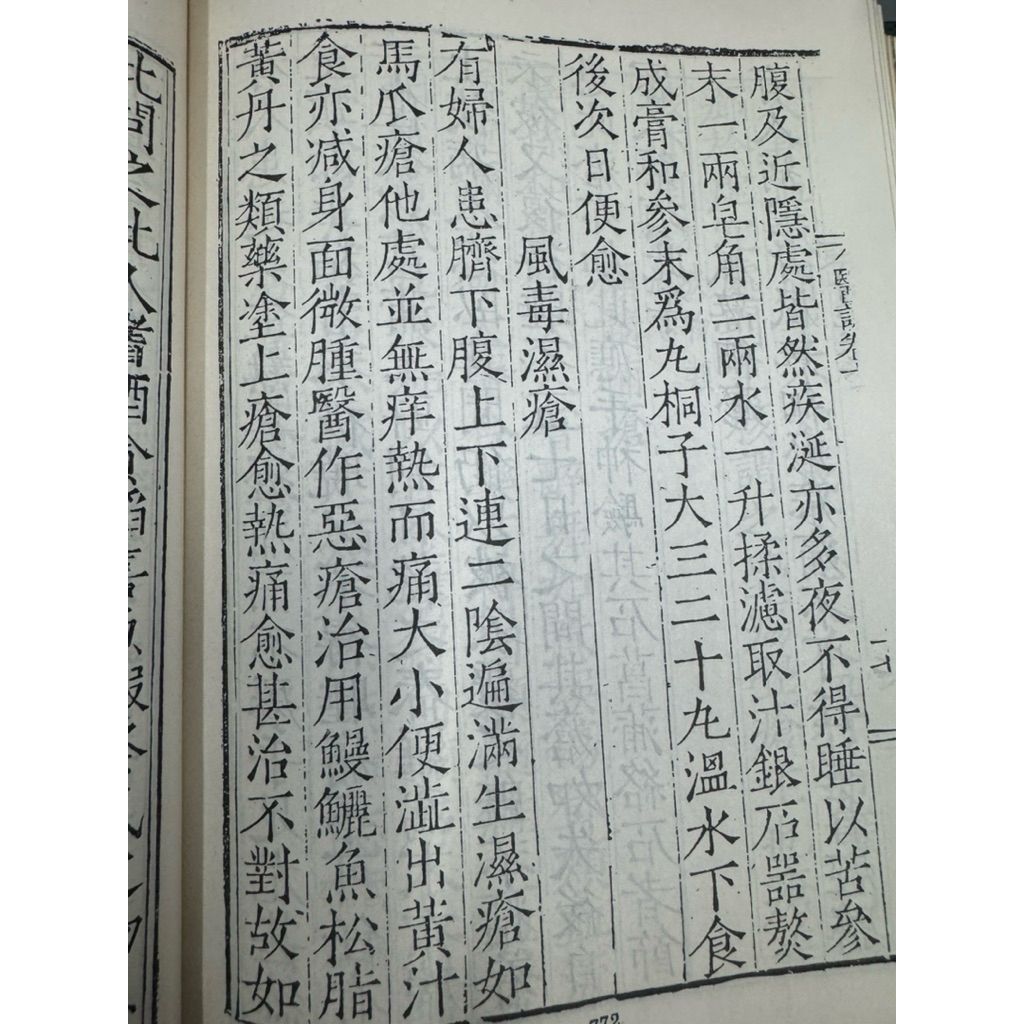 醫說卷十
腹及近隱處皆然疾涎亦多夜不得睡以苦參
末一兩皂角二兩水一升揉濾取汁銀石器熬
成膏和參末爲丸桐子大三二十丸溫水下食
後次日便愈
風毒濕瘡
有婦人患臍下腹上下連二陰遍滿生濕瘡如
馬瓜瘡他處並無痒熱而痛大小便澁出黃汁
食亦减身面微腫醫作惡瘡治用鰻鱺魚松脂
黃丹之類藥塗上瘡愈熱痛愈甚治不對故如
此問之此人嗜酒
772